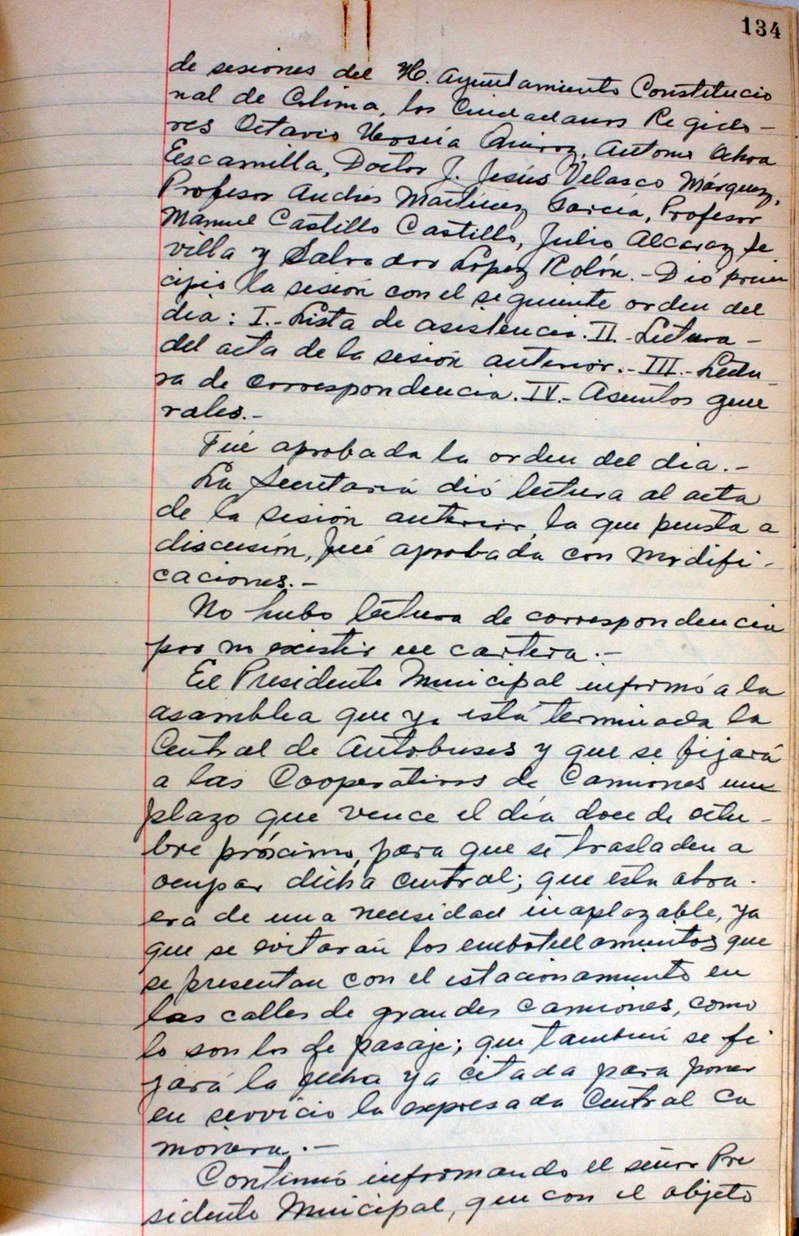 134
de sesiones del H. Ayuntamiento Constitucio
nal de Colima, los Ciudadanos Regido-
res Octavio Urzúa Quiroz, Antonio Ochoa
Escamilla, Doctor J. Jesús Velasco Márquez,
Profesor Andrés Martínez García, Profesor
Manuel Castillo Castillo, Julio Alcaraz Se
villa y Salvador López Rolón.- Dió prin
cipio la sesión con el siguiente orden del
día: I.- Lista de asistencia. II.- Lectura-
del acta de la sesión anterior.- III.- Lectu-
ra de correspondencia. IV.- Asuntos gene
rales.-
Fué aprobada la orden del día.-
La Secretaría dió lectura al acta
de la sesión anterior, la que puesta a
discusión, fué aprobada con modifi-
caciones.-
No hubo lectura de correspondencia
por no existir en cartera.-
El Presidente Municipal informó a la
asamblea que ya está terminada la
Central de Autobuses y que se fijará
a las Cooperativas de Camiones un
plazo que vence el día doce de octu-
bre próximo, para que se trasladen a
ocupar dicha central; que esta obra-
era de una necesidad inaplazable, ya
que se evitarán los embotellamientos que
se presentan con el estacionamiento en
las calles de grandes camiones, como
lo son los de pasaje; que también se fi
jará la fecha ya citada para poner
en servicio la expresada Central Ca
mionera.-
Continuó informando el señor Pre
sidente Municipal, que con el objeto